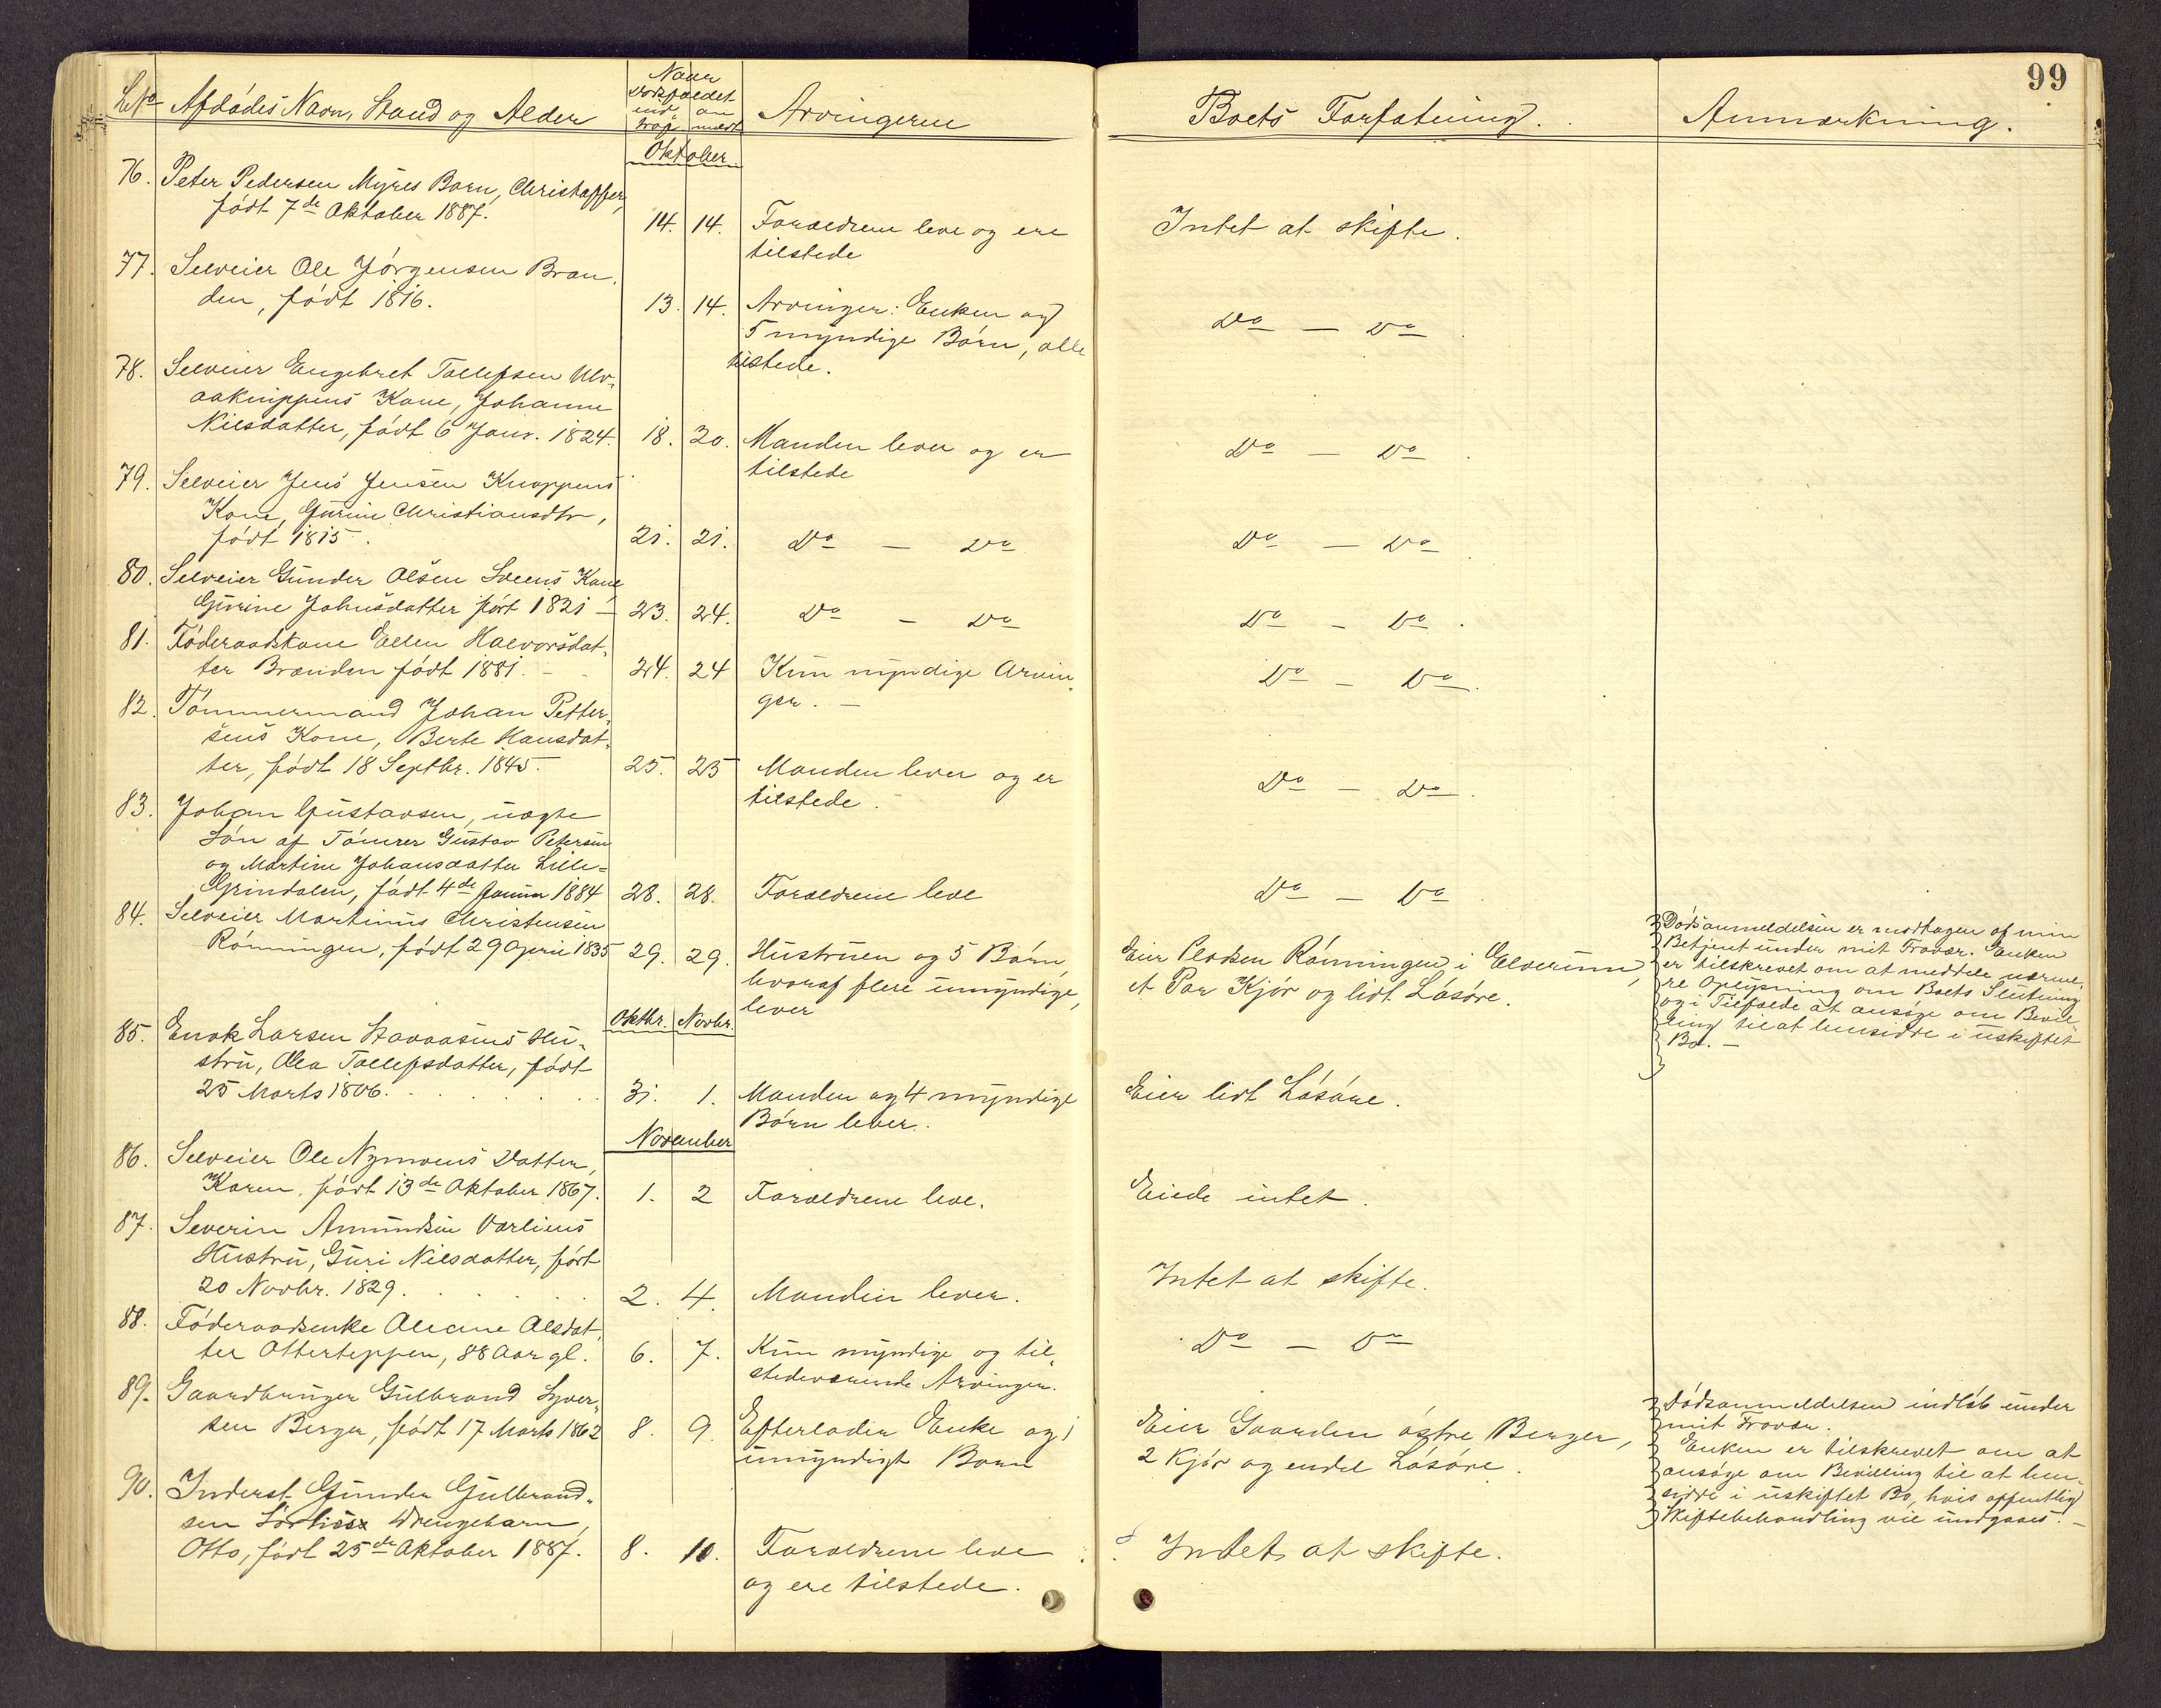 99
LNo Afdødes Navn, Stand og Alder
Naar Dødsfaldet
ind- an-
traf meldt
Arvingerne
Boets Forfatning.
Anmærkning.
Oktober
76. Peter Pedersen Myres Barn, Christoffer,
født 7de Oktober 1887.
14. 14. Forældrene leve og ere
tilstede
Intet at skifte.
77. Selveier Ole Jørgensen Bræn-
den, født 1816.
13. 14. Arvinger: Enken og
5 myndige Børn, alle
tilstede.
Do — Do.
78. Selveier Engebret Tollefsen Ulv-
aakneppens Kone, Johanne
Nilsdatter, født 6 Janr. 1824.
18. 20. Manden lever og er
tilstede
Do — Do.
79. Selveier Jens Jensen Knappens
Kone, Gurine Christiansdtr,
født 1815.
21. 21. Do — Do
Do — Do.
80. Selveier Gunder Olsen Sveens Kone
Gurine Johnsdatter født 1821 —
23. 24. Do — Do
Do — Do.
81. Føderaadskone Ellen Halvorsdat-
ter Brænden født 1881. —
24. 24 Kun myndige Arvin-
ger. —
Do — Do.
82. Tømmermand Johan Petter-
sens Kone, Berte Hansdat-
ter, født 18 Septbr. 1845.
25. 25 Manden lever og er
tilstede.
Do — Do.
83. Johan Gustavsen, uægte
Søn af Tømrer Gustav Petersen
og Martine Johansdatter Lille-
Grindalen, født 4de Januar 1884
28. 28. Forældrene leve
Do — Do.
84. Selveier Martinus Christensen
Rønningen, født 29 April 1835
29. 29. Hustruen og 5 Børn,
hvoraf flere umyndige,
lever
Eier Pladsen Rønningen i Elverum,
et Par Kjør og lidt Løsøre.
Dødsanmeldelsen er modtagen af min
Betjent under mit Fravær. Enken
er tilskrevet om at meddele nærme-
re Oplysning om Boets Slutning
og i Tilfælde at ansøge om Bevil-
ling til at hensidde i uskiftet
Bo. —
Oktbr. Novbr.
85. Enok Larsen Stavaasens Hu-
stru, Olea Tollefsdatter, født
25 Marts 1806.
31. 1. Manden og 4 myndige
Børn lever.
Eier lidt Løsøre.
November
86. Selveier Ole Nymoens Datter,
Karen, født 13de Oktober 1867.
1. 2 Forældrene leve.
Eiede intet.
87. Severin Amundsen Vorliens
Hustru, Guri Nilsdatter, født
20 Novbr. 1829.
2. 4. Manden lever.
Intet at skifte.
88. Føderaadsenke Oleane Olsdat-
ter Otterteppen, 88 Aar gl.
6. 7. Kun myndige og til-
stedeværende Arvinger.
Do — Do
89. Gaardbruger Gulbrand Syver-
sen Berger, født 17 Marts 1862
8. 9. Efterlader Enke og 1
umyndigt Barn
Eier Gaarden østre Berger,
2 Kjør og endel Løsøre.
Dødsanmeldelsen indløb under
mit Fravær.
Enken er tilskrevet om at
ansøge om Bevilling til at hen-
sidde i uskiftet Bo, hvis offentlig
Skiftebehandling vil undgaaes. —
90. Inderst Gunder Gulbrand-
sen Drengebarn,
Otto, født 25de Oktober 1887.
8. 10. Forældrene leve
og ere tilstede.
Intet at skifte.